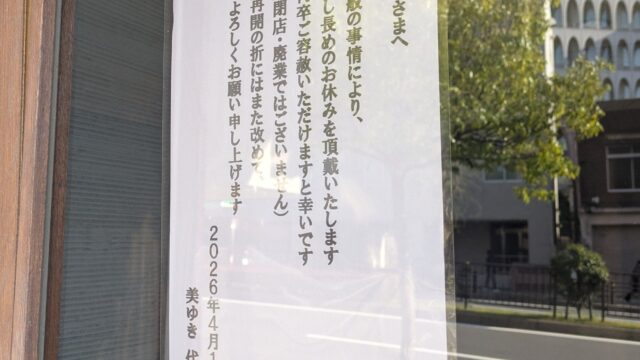 さまへ
般の事情により、
し長めのお休みを頂戴いたします
卒ご容赦いただけますと幸いです
閉店・廃業ではございません）
再開の折にはまた改めて
よろしくお願い申し上げます
2026年4月1
美ゆき 代